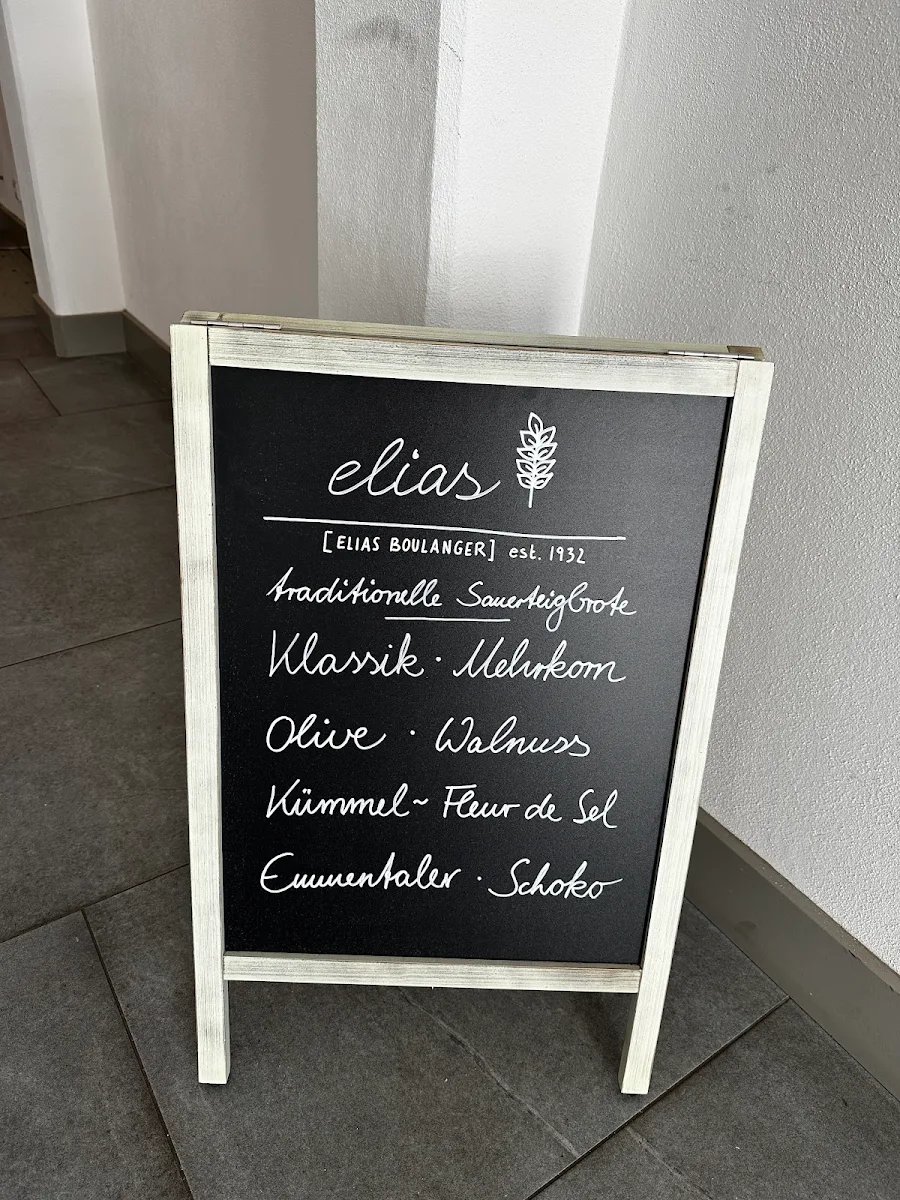 elias
[ELIAS BOULANGER] est. 1932
traditionelle Sauerteigbrote
Klassik · Mehrkorn
Olive · Walnuss
Kümmel~ Fleur de Sel
Emmentaler · Schoko